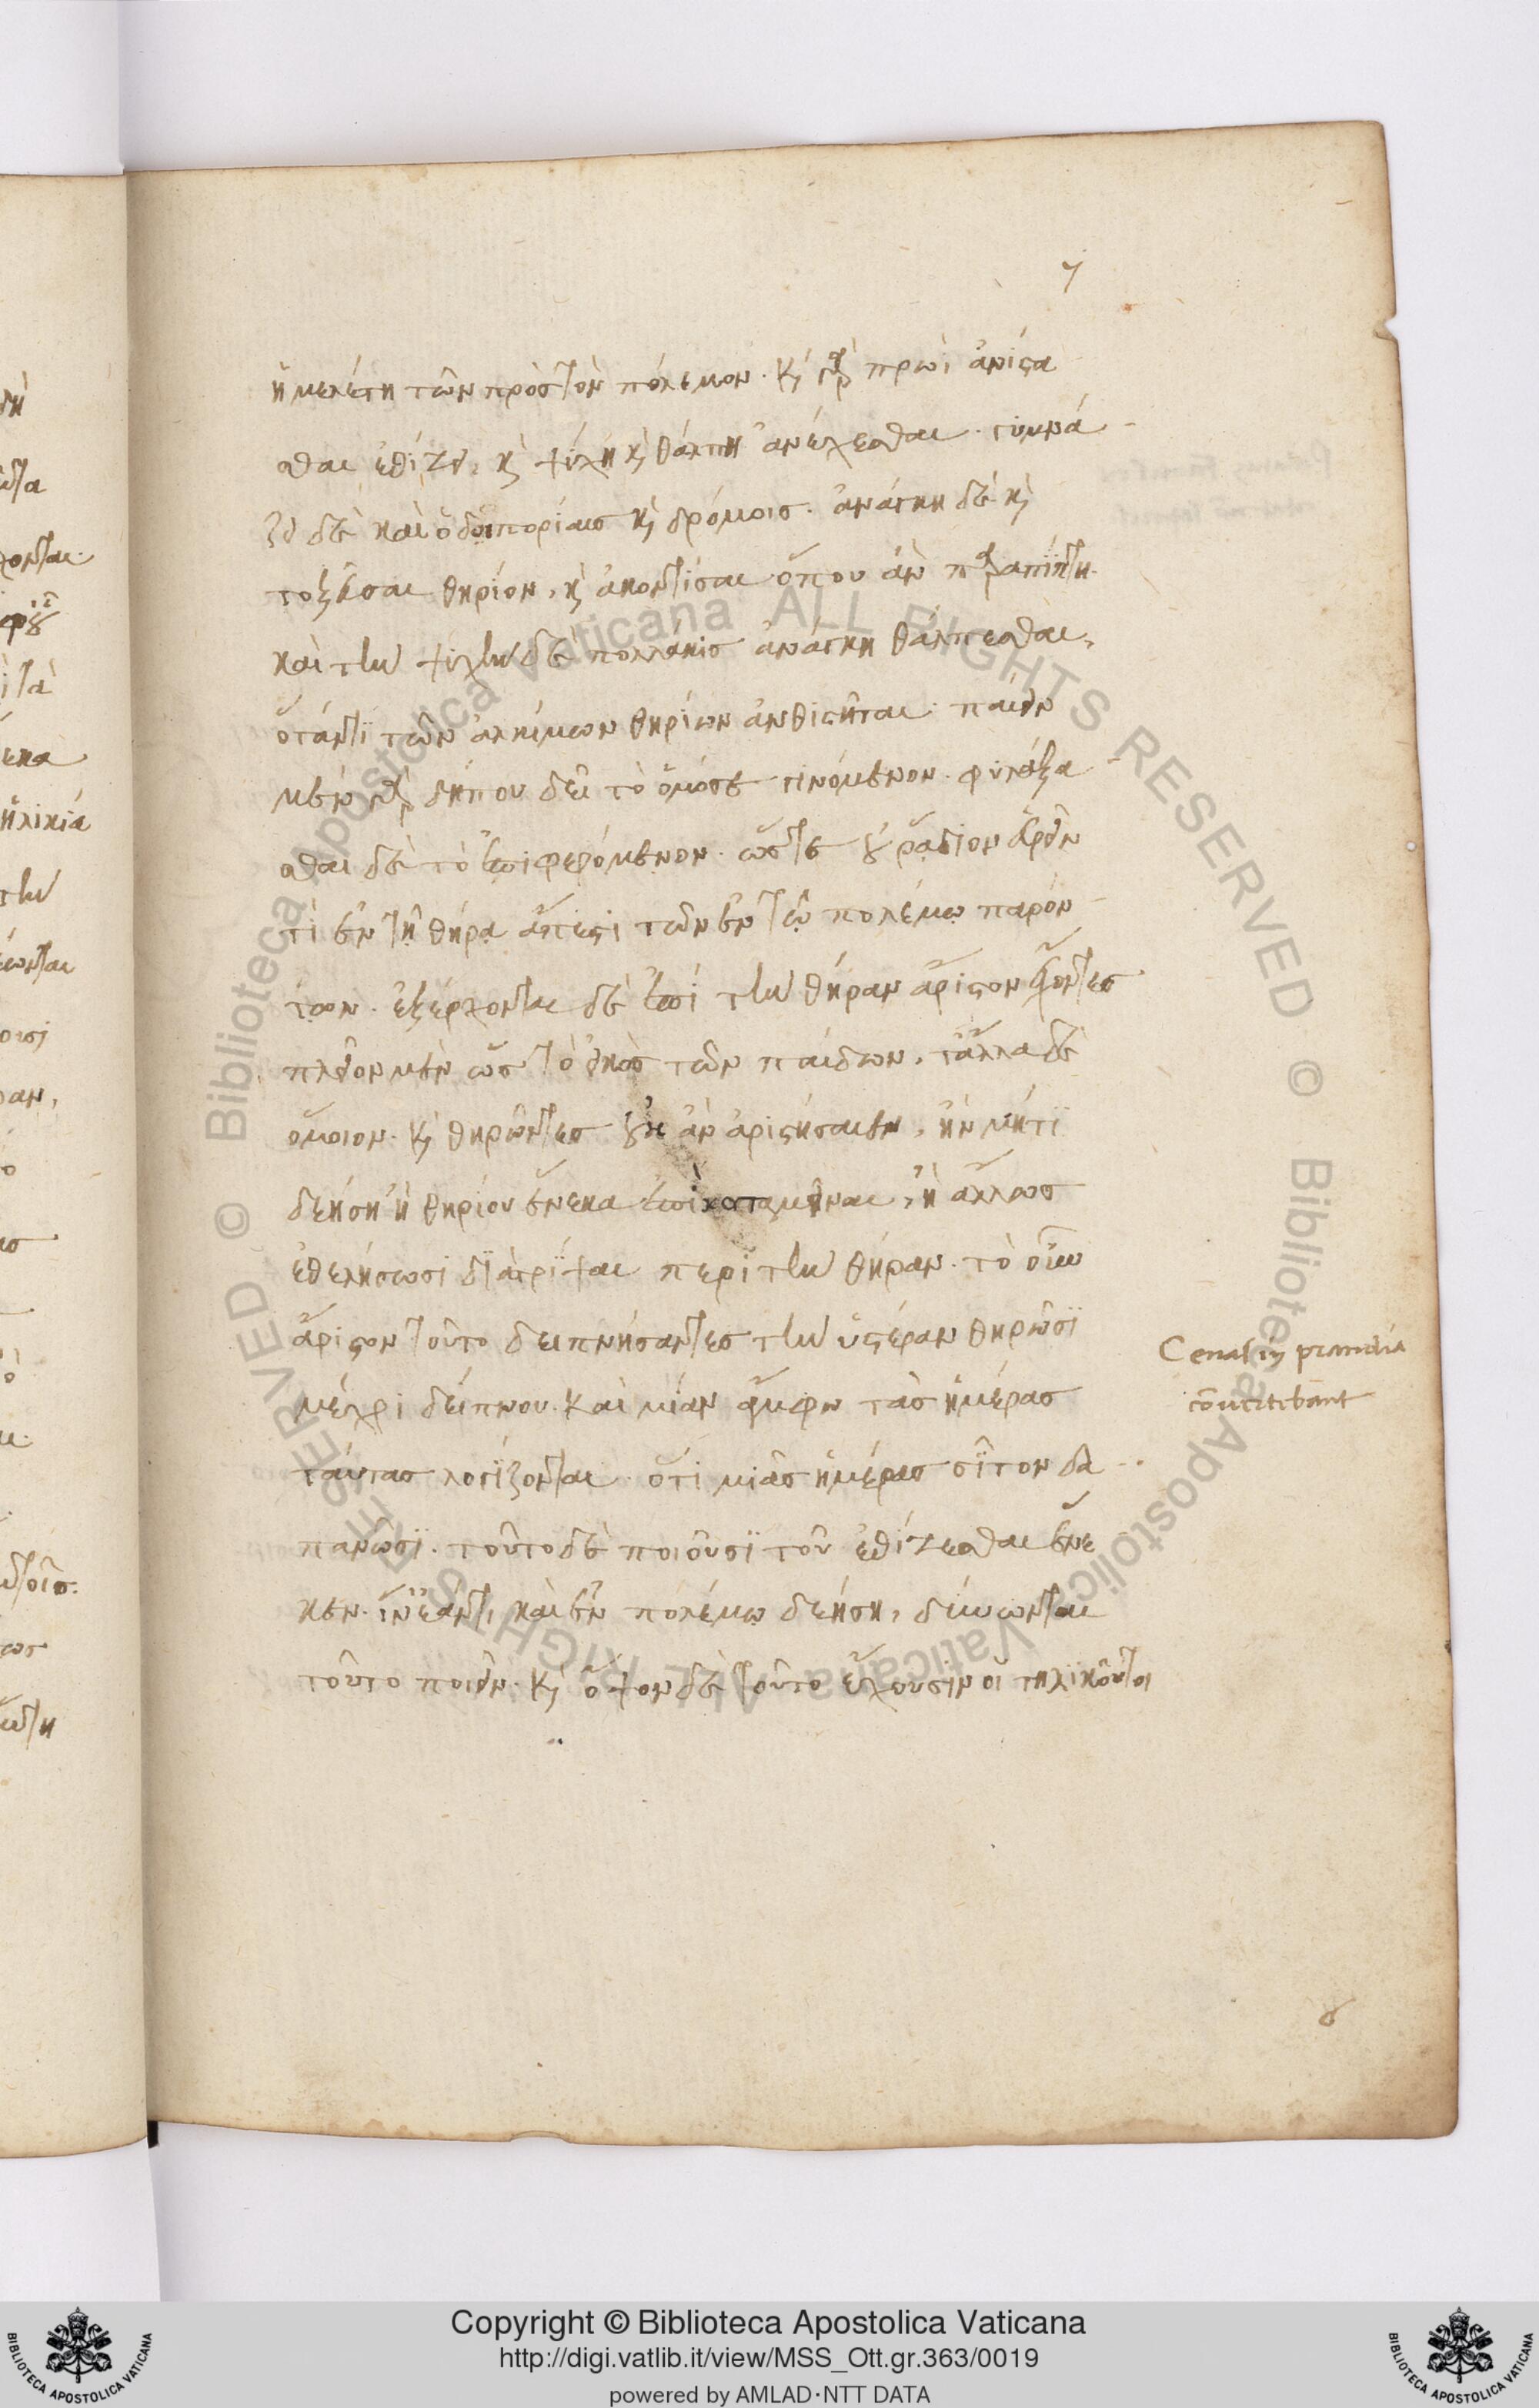 7
ἡ μελέτη τῶν πρὸς τὸν πόλεμον. καὶ γὰρ πρωῒ ἀνίστα
σθαι ἐθίζει, καὶ ψύχη καὶ θάλπη ἀνέχεσθαι. γυμνά
ζει δὲ καὶ ὁδοιπορίαις καὶ δρόμοις. ἀνάγκη δὲ καὶ
τοξεῦσαι θηρίον, καὶ ἀκοντίσαι ὅπου ἂν παραπίπτη.
καὶ τὴν ψυχὴν δὲ πολλάκις ἀνάγκη θάλπεσθαι,
ὅταν τι τῶν ἀλκίμων θηρίων ἀνθιστῆται. παίειν
μὲν γὰρ δήπου δεῖ τὸ ὁμόσε γινόμενον. φυλάξα
σθαι δὲ τὸ ἐπιφερόμενον. ὥστε οὐ ῥᾴδιον εὑρεῖν
τί ἐν τῆ θήρᾳ ἄπεστι τῶν ἐν τῷ πολέμῳ παρόν
των. ἐξέρχονται δὲ ἐπὶ τὴν θήραν ἄριστον ἔχοντες
πλεῖον μὲν ὡς τὸ εἰκὸς τῶν παίδων, τἄλλα δὲ
ὅμοιον. καὶ θηρῶντες οὐκ ἂν ἀριστήσαιεν, ἢν μή τι
δεήση ἢ θηρίου ἕνεκα ἐπικαταμεῖναι, ἢ ἄλλως
ἐθελήσωσι διατρίψαι περὶ τὴν θήραν. τὸ οὖν
ἄριστον τοῦτο δειπνήσαντες τὴν ὑστέραν θηρῶσι
μέχρι δείπνου. καὶ μίαν ἄμφω τὰς ἡμέρας
ταύτας λογίζονται. ὅτι μιᾶς ἡμέρας σῖτον δα
πανῶσι. τοῦτο δὲ ποιοῦσι τοῦ ἐθίζεσθαι ἕνε
κεν. ἵν' ἐάν τι καὶ ἐν πολέμῳ δεήση, δύνωνται
τοῦτο ποιεῖν. καὶ ὄψον δὲ τοῦτο ἔχουσιν οἱ τηλικοῦτοι
Cenas in prandia
convertebant
Copyright © Biblioteca Apostolica Vaticana
http://digi.vatlib.it/view/MSS_Ott.gr.363/0019
powered by AMLAD·NTT DATA
BIBLIOTECA APOSTOLICA VATICANA
BIBLIOTECA APOSTOLICA VATICANA
© Biblioteca Apostolica Vaticana ALL RIGHTS RESERVED
© Biblioteca Apostolica Vaticana ALL RIGHTS RESERVED